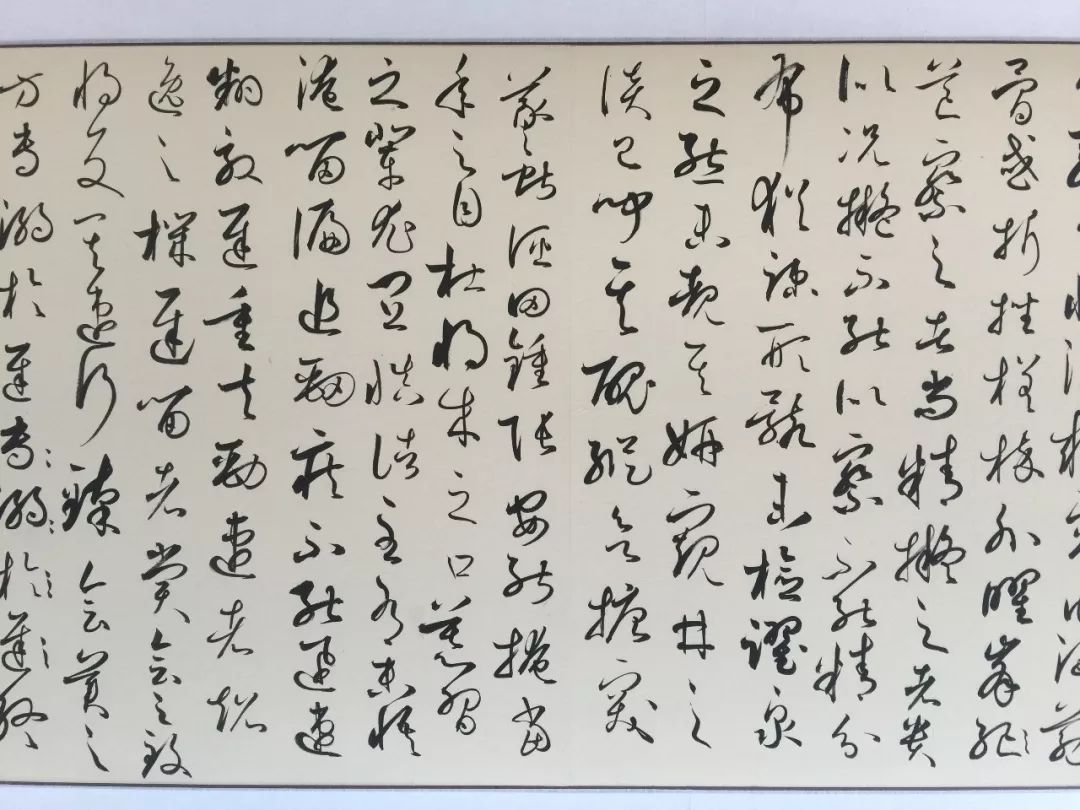 骨或折挫槎枿外曜峯
芒察之者尚精擬之者貴
似況擬不能似察不能精分
布猶疎形骸未檢躍泉
之態未覩其妍窺井之
談已聞其醜縱欲搪突
羲獻誣罔鍾張安能掩當
年之目杜將来之口慕習
之輩尤宜慎諸至有未悟
淹留偏追勁疾不能迅速
翻効遲重夫勁速者超
逸之機遲留者賞會之致
將反其速行臻會美之
方專溺於遲專溺於遲終